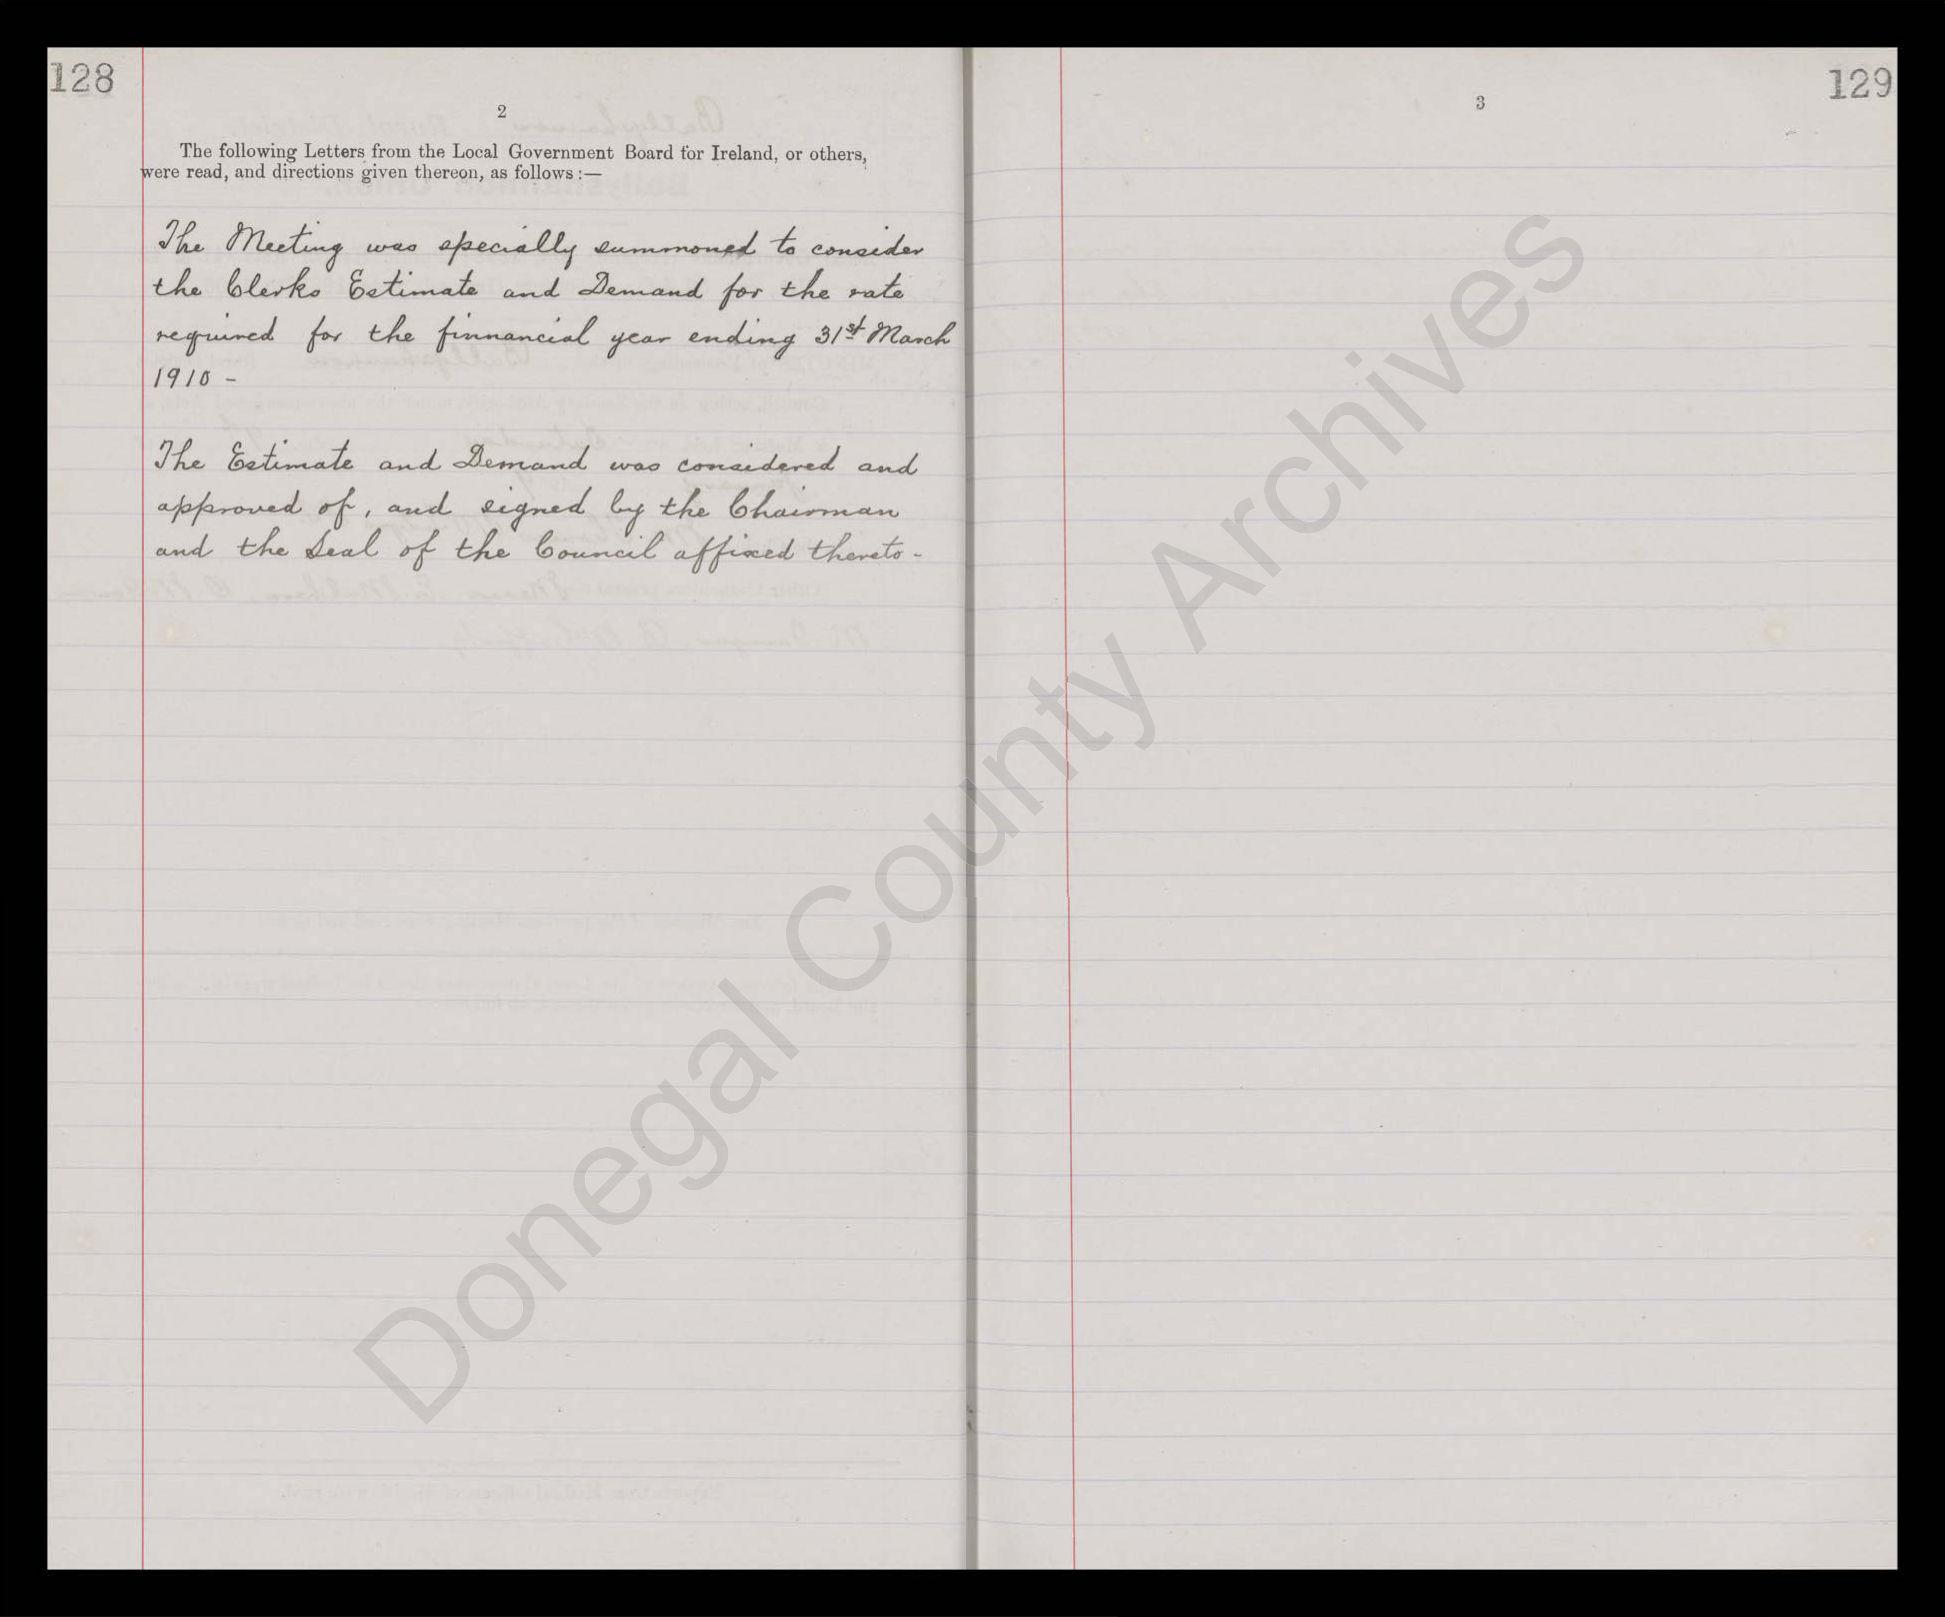 128
2
The following Letters from the Local Government Board for Ireland, or others,
were read, and directions given thereon, as follows :—
The Meeting was specially summoned to consider
the Clerks Estimate and Demand for the rate
required for the finnancial year ending 31st March
1910 -
The Estimate and Demand was considered and
approved of, and signed by the Chairman
and the Seal of the Council affixed thereto -
129
3
Donegal County Archives